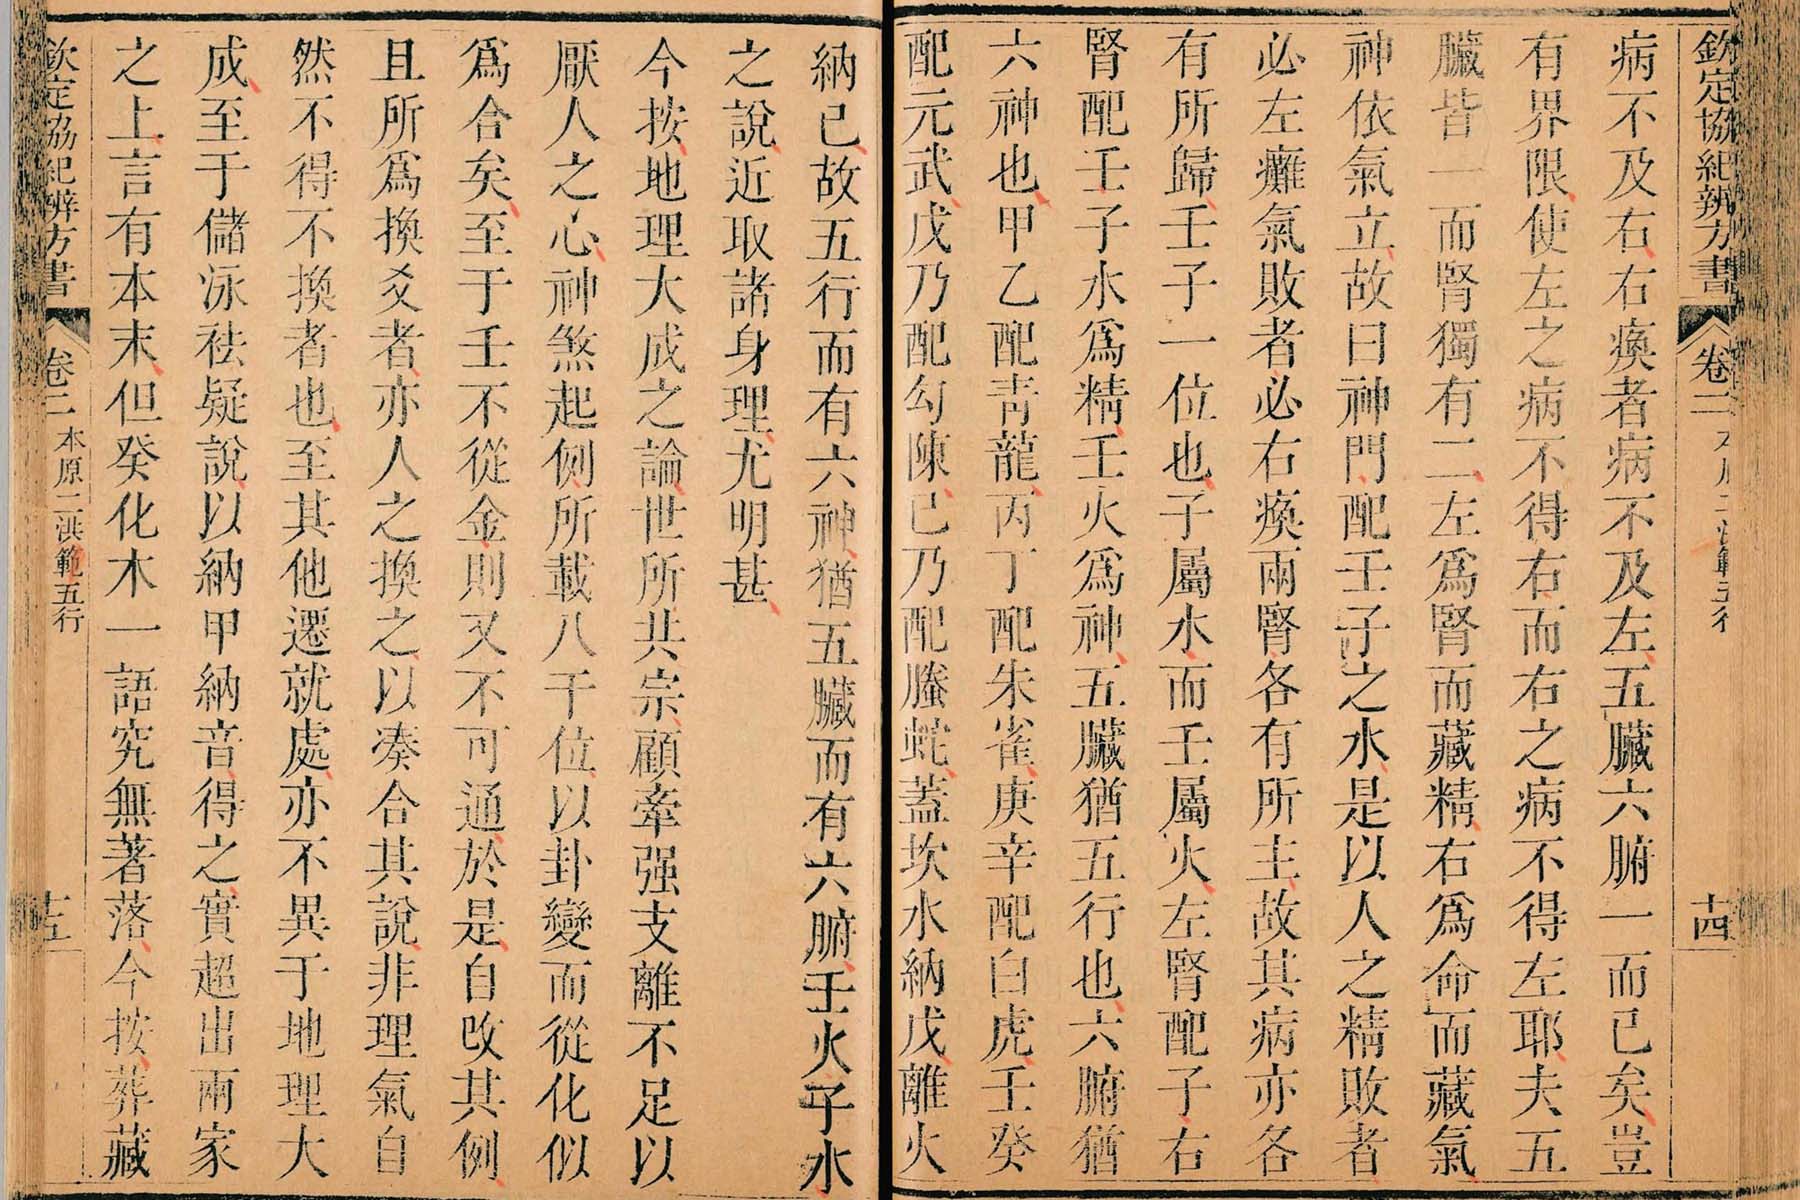 欽定協紀辨方書 卷二 本原二 洪範五行 十四
病不及右右瘓者病不及左五臟六腑一而已矣豈
有界限使左之病不得右而右之病不得左耶夫五
臟皆一而腎獨有二左爲腎而藏精右爲命而藏氣
神依氣立故曰神門配壬子之水是以人之精敗者
必左癱氣敗者必右瘓兩腎各有所主故其病亦各
有所歸壬子一位也子屬水而壬屬火左腎配子右
腎配壬子水爲精壬火爲神五臟猶五行也六腑猶
六神也甲乙配青龍丙丁配朱雀庚辛配白虎壬癸
配元武戊乃配勾陳已乃配螣蛇蓋坎水納戊離火
納已故五行而有六神猶五臟而有六腑壬火子水
之說近取諸身理尤明甚
今按地理大成之論世所共宗顧牽强支離不足以
厭人之心神煞起例所載八干位以卦變而從化似
爲合矣至于壬不從金則又不可通於是自改其例
且所爲換爻者亦人之換之以湊合其說非理氣自
然不得不換者也至其他遷就處亦不異于地理大
成至于儲泳祛疑說以納甲納音得之實超出兩家
之上言有本末但癸化木一語究無著落今按葬藏
欽定協紀辨方書 卷二 本原二 洪範五行 十五